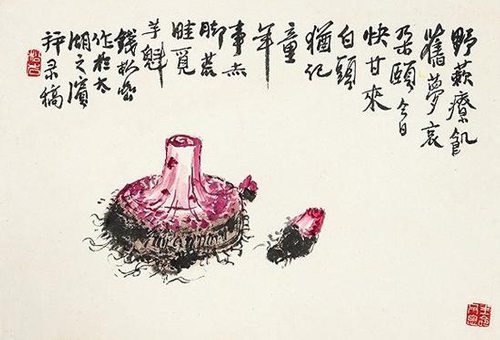 野蔌療飢
舊夢哀
朵頤今日
快甘來
白頭
猶記
童
年
事赤
脚荒
畦覓
芋魁
錢松嵒
作於太
湖之濱
录稿